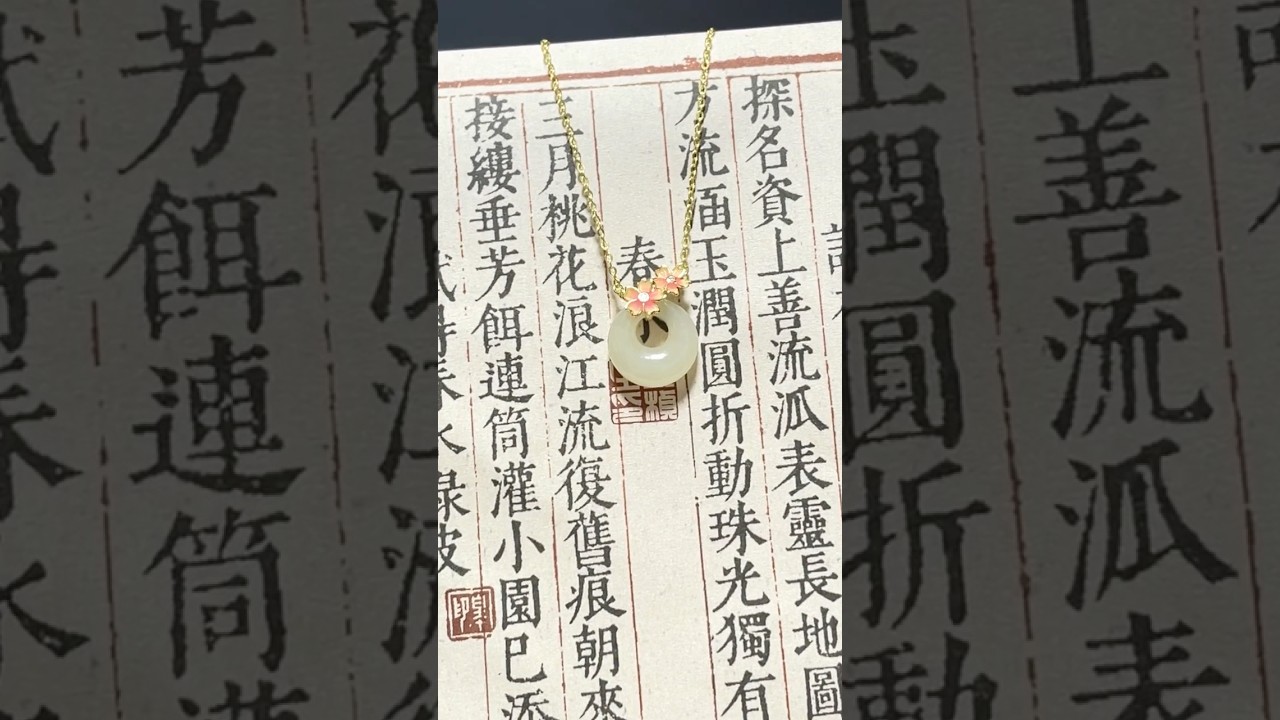 探名資上善流泒表靈長地圖
方流畐玉潤圓折動珠光獨有
春
三月桃花浪江流復舊痕朝來
接縷垂芳餌連筒灌小園巳添